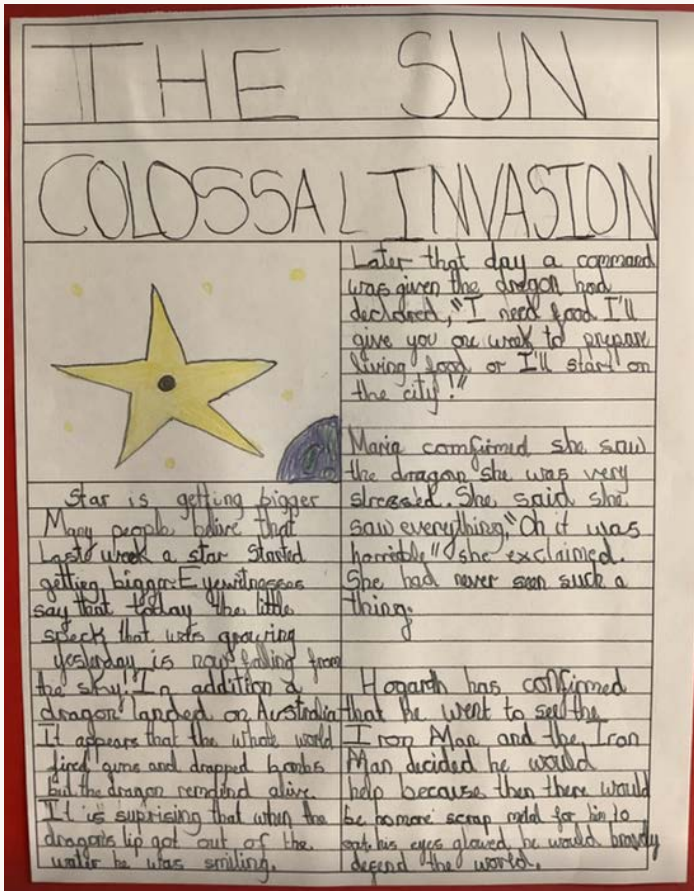 THE SUN
COLOSSAL INVASION
Star is getting bigger
Many people belive that
Last week a star started
getting bigger. Eyewitnesses
say that today the little
speck that was growing
yesterday is now falling from
the sky! In addition a
dragon landed on Australia
It appears that the whole world
fired guns and drapped bombs
but the dragon remaind alive.
It is suprising that when the
dragons lip got out of the
water he was smiling.
Later that day a command
was given the dragon had
declared, "I need food I'll
give you one week to prepare
living food or I'll start on
the city!"
Maria comfirmed she saw
the dragon she was very
stressed. She said she
saw everything, "Oh it was
horrible" she exclaimed.
She had never seen such a
thing.
Hogarth has confirmed
that he went to see the
Iron Man and the Iron
Man decided he would
help because then there would
be no more scrap metal for him to
eat. his eyes glowed he would bravely
defend the world.